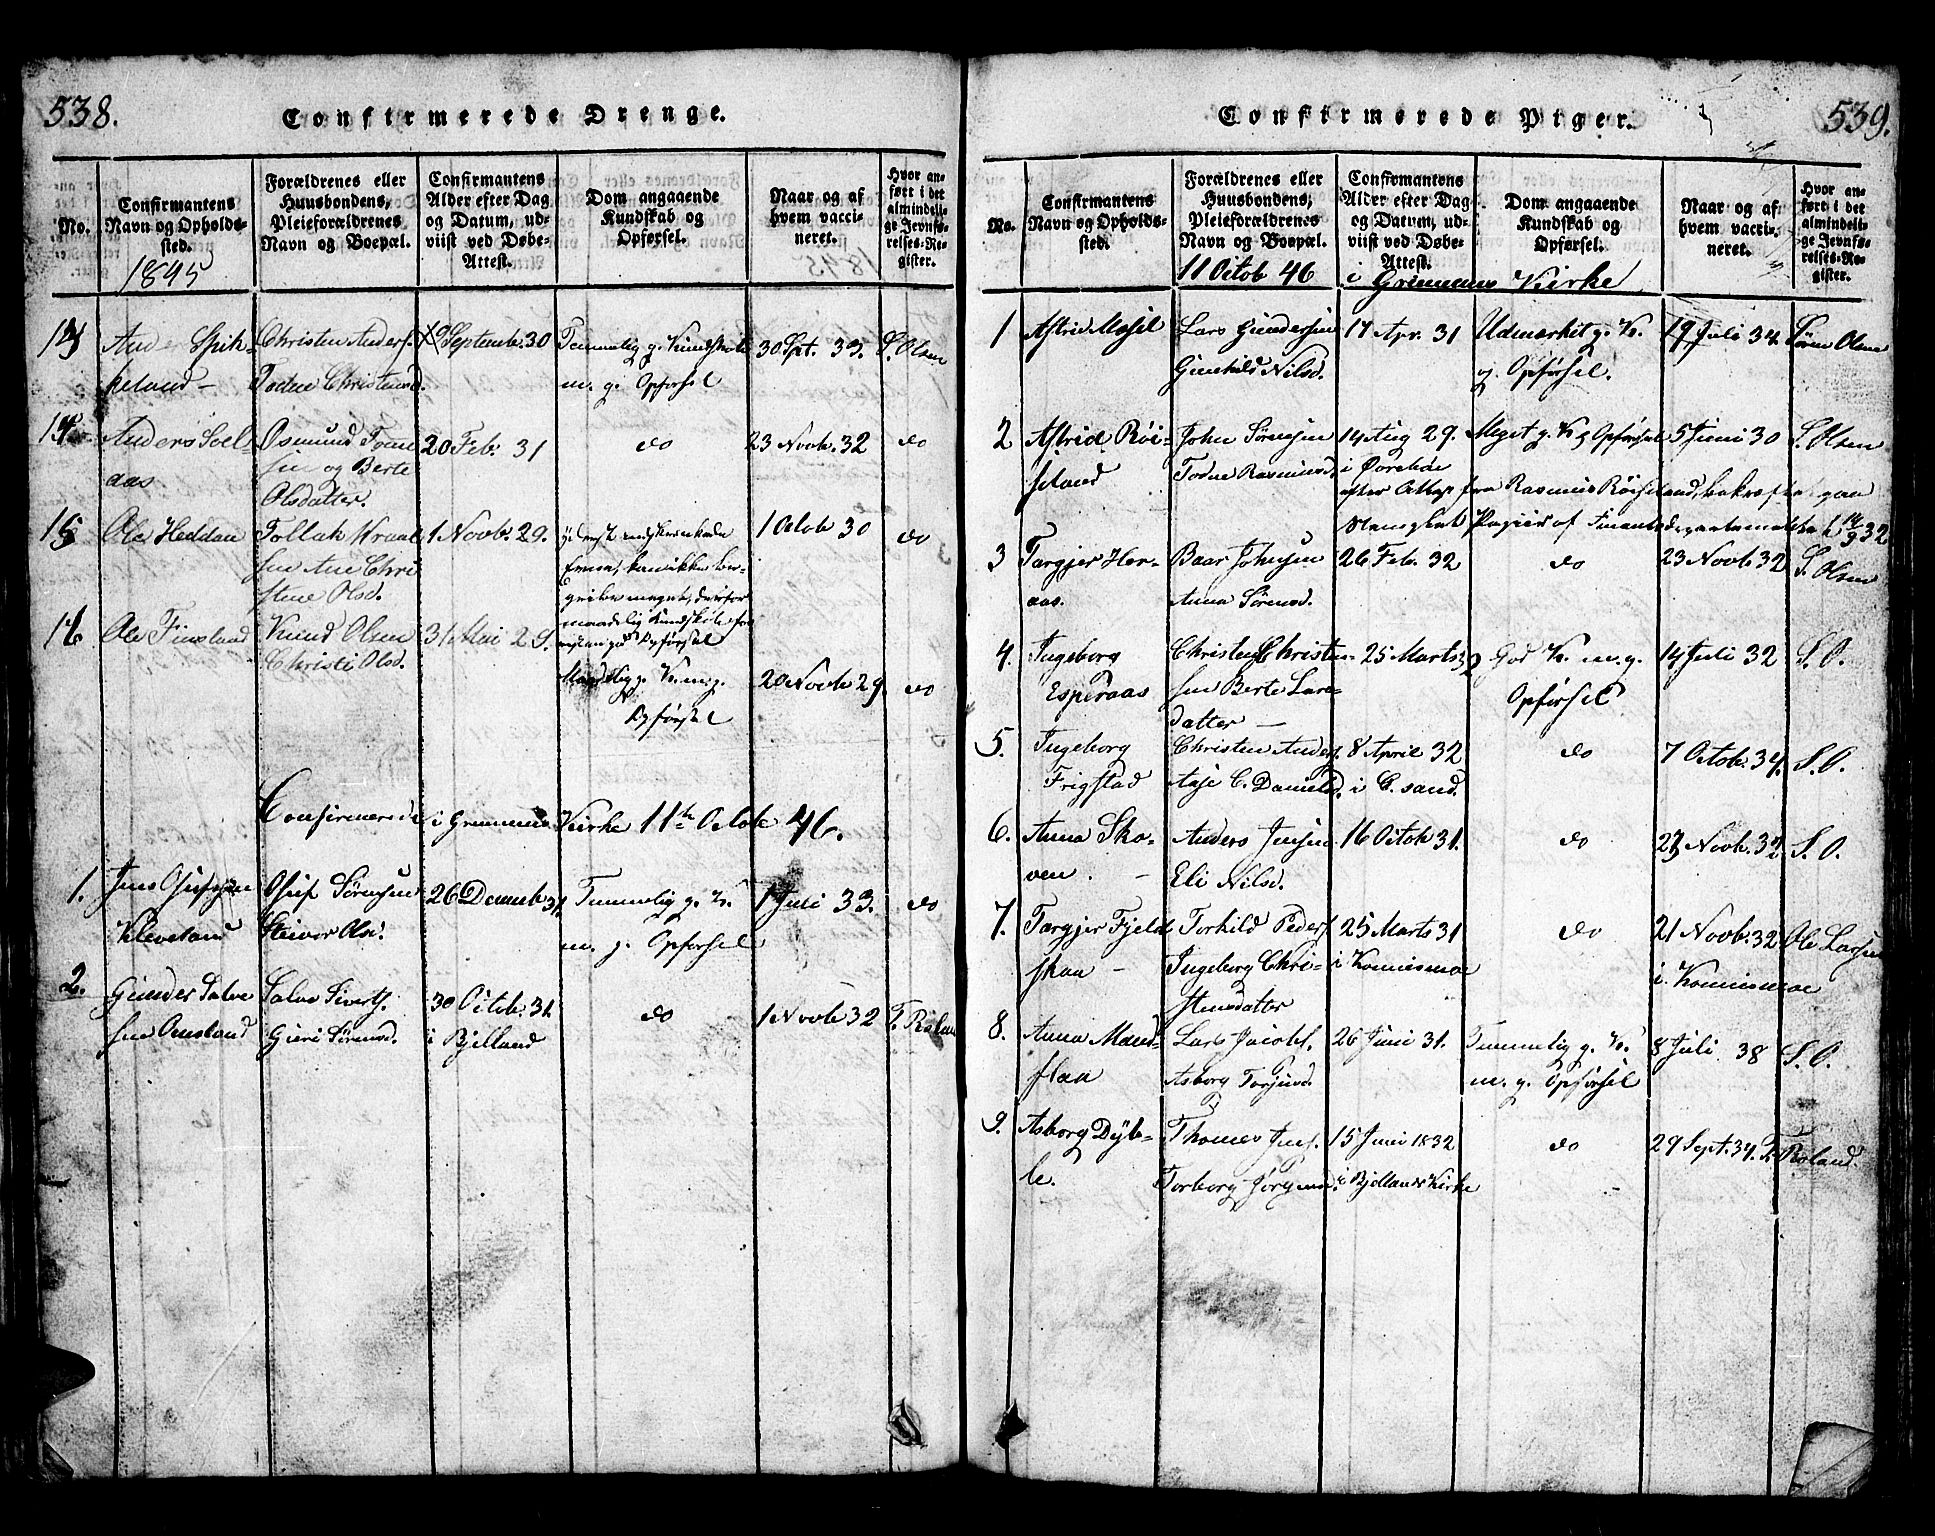 538.
Confirmerede Drenge.
No.
Confirmantens
Navn og Opholds-
sted.
1845
Forældrenes eller
Huusbondens,
Pleieforældrenes
Navn og Boepæl.
Confirmantens
Alder efter Dag
og Datum, ud-
viist ved Døbe-
Attest.
Dom angaaende
Kundskab og
Opførsel.
Naar og af
hvem vacci-
neret.
Hvor an-
ført i det
almindeli-
ge Jevnfø-
relses-Re-
gister.
13
Ande Spik-
keland –
Christen Anders.
Todne Christensd.
19 Septemb. 30
Temmelig g. Kundskab
m. g. Opførsel
30 Spt. 33.
S. Olsen
14
Anders Soel-
aas
Osmund Toer-
sen og Berte
Olsdatter.
20 Feb. 31
do
23 Novb. 32
do
15
Ole Heddan
Tollak
sen Ane Chri
stene Olsd.
1 Novb. 29.
yderst indskrænkede
Evner, kan ikke be-
gribe meget, derfor
maadelig Kundskab, for
Opførsel
1 Octob 30
do
16
Ole Finsland
Knud Olsen
Christi Olsd.
31 Mai 29.
Maadelig g. K. m. g.
Opførsel
20 Novb 29
do
Confirmerede i Grimmens Kirke 11te Octob 46.
1.
Jens Osifsen
Kleveland
Osif Sørensen
Steivor Olsd.
26 Decemb 31
Temmelig g. K.
m. g. Opførsel
1 Juli 33.
do
2.
Gunder Salve
sen Omsland
Salve Siverts.
Gieri Sørensd.
30 Octob. 31
i Bjelland
do
1 Novb 32
T. Roland
539.
Confirmerede Piger.
No.
Confirmantens
Navn og Opholds-
sted.
Forældrenes eller
Huusbondens,
Pleieforældrenes
Navn og Boepæl.
Confirmantens
Alder efter Dag
og Datum, ud-
viist ved Døbe-
Attest.
Dom angaaende
Kundskab og
Opførsel.
Naar og af
hvem vacci-
neret.
Hvor an-
ført i det
almindeli-
ge Jevnfø-
relses-Re-
gister.
11 Octob 46 i Grimmens Kirke
1
Astrid Mosel
Lars Gundersen
Gunhild Nilsd.
17 Apr. 31
Udmærket g. K.
g. Opførsel.
19 Juli 34.
Søren Olsen
2
Astrid Røi-
seland
John Sørensen
Todne Rasmusd.
14 Aug 29.
i Øvrebøe
Meget g. K g Opførsel
5 Juni 30
S. Olsen
efter Attest fra Rasmus Røiseland, bekræftet paa
Stemplet Papiir af Finantsdepartementet 14/9 32
3
Targjer Hor-
aas.
Baar Johnsen
Anna Sørensd.
26 Feb. 32
do
23 Novb 32
S. Olsen
4.
Ingeborg
Esperaas
Christen Christen-
sen Berte Lars-
datter –
25 Marts 32
God K. m. g.
Opførsel
14 Juli 32
S. O.
5.
Ingeborg
Frigstad
Christen Anders.
Aase C. Danielsd.
8 April 32
i C. sand.
do
7 Octob. 34.
S. O.
6.
Anna Sko-
ven. –
Anders Jensen
Eli Nilsd.
16 Octob 31.
do
23 Novb. 32.
S. O.
7.
Targjer Fjeld
skaa –
Torkild Peders.
Ingeborg Chri-
stensdatter
25 Marts 31
i Konnismoe
do
21 Novb. 32
i Konnismoe
Ole Larsen
8.
Anna Mand-
flaa
Lars Jacobs.
Asborg Torjusd.
26 Juni 31.
Temmelig g. K.
m. g. Opførsel
8 Juli 38
S. O.
9.
Asborg Dyb-
le.
Thomes Jens.
Torborg Jørgensd.
15 Juni 1832
i Bjellands Kirke
do
29 Sept. 34.
T. Roland.